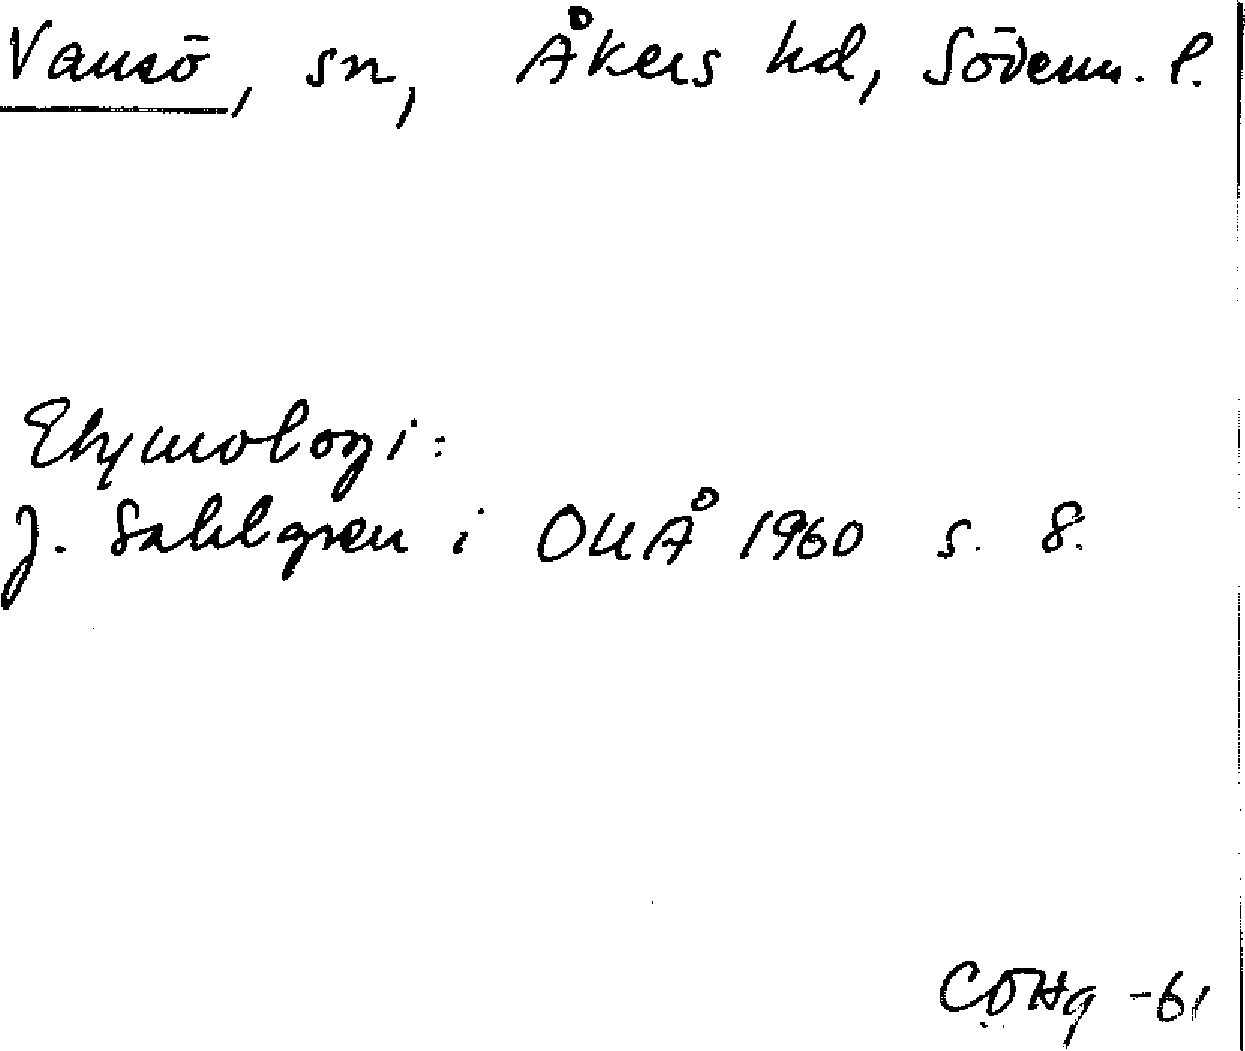 Vansö, sn, Åkers hd, Söderm. l.
Etymologi:
J. Sahlgren i OUÅ 1960 s. 8.
CÖHg -61